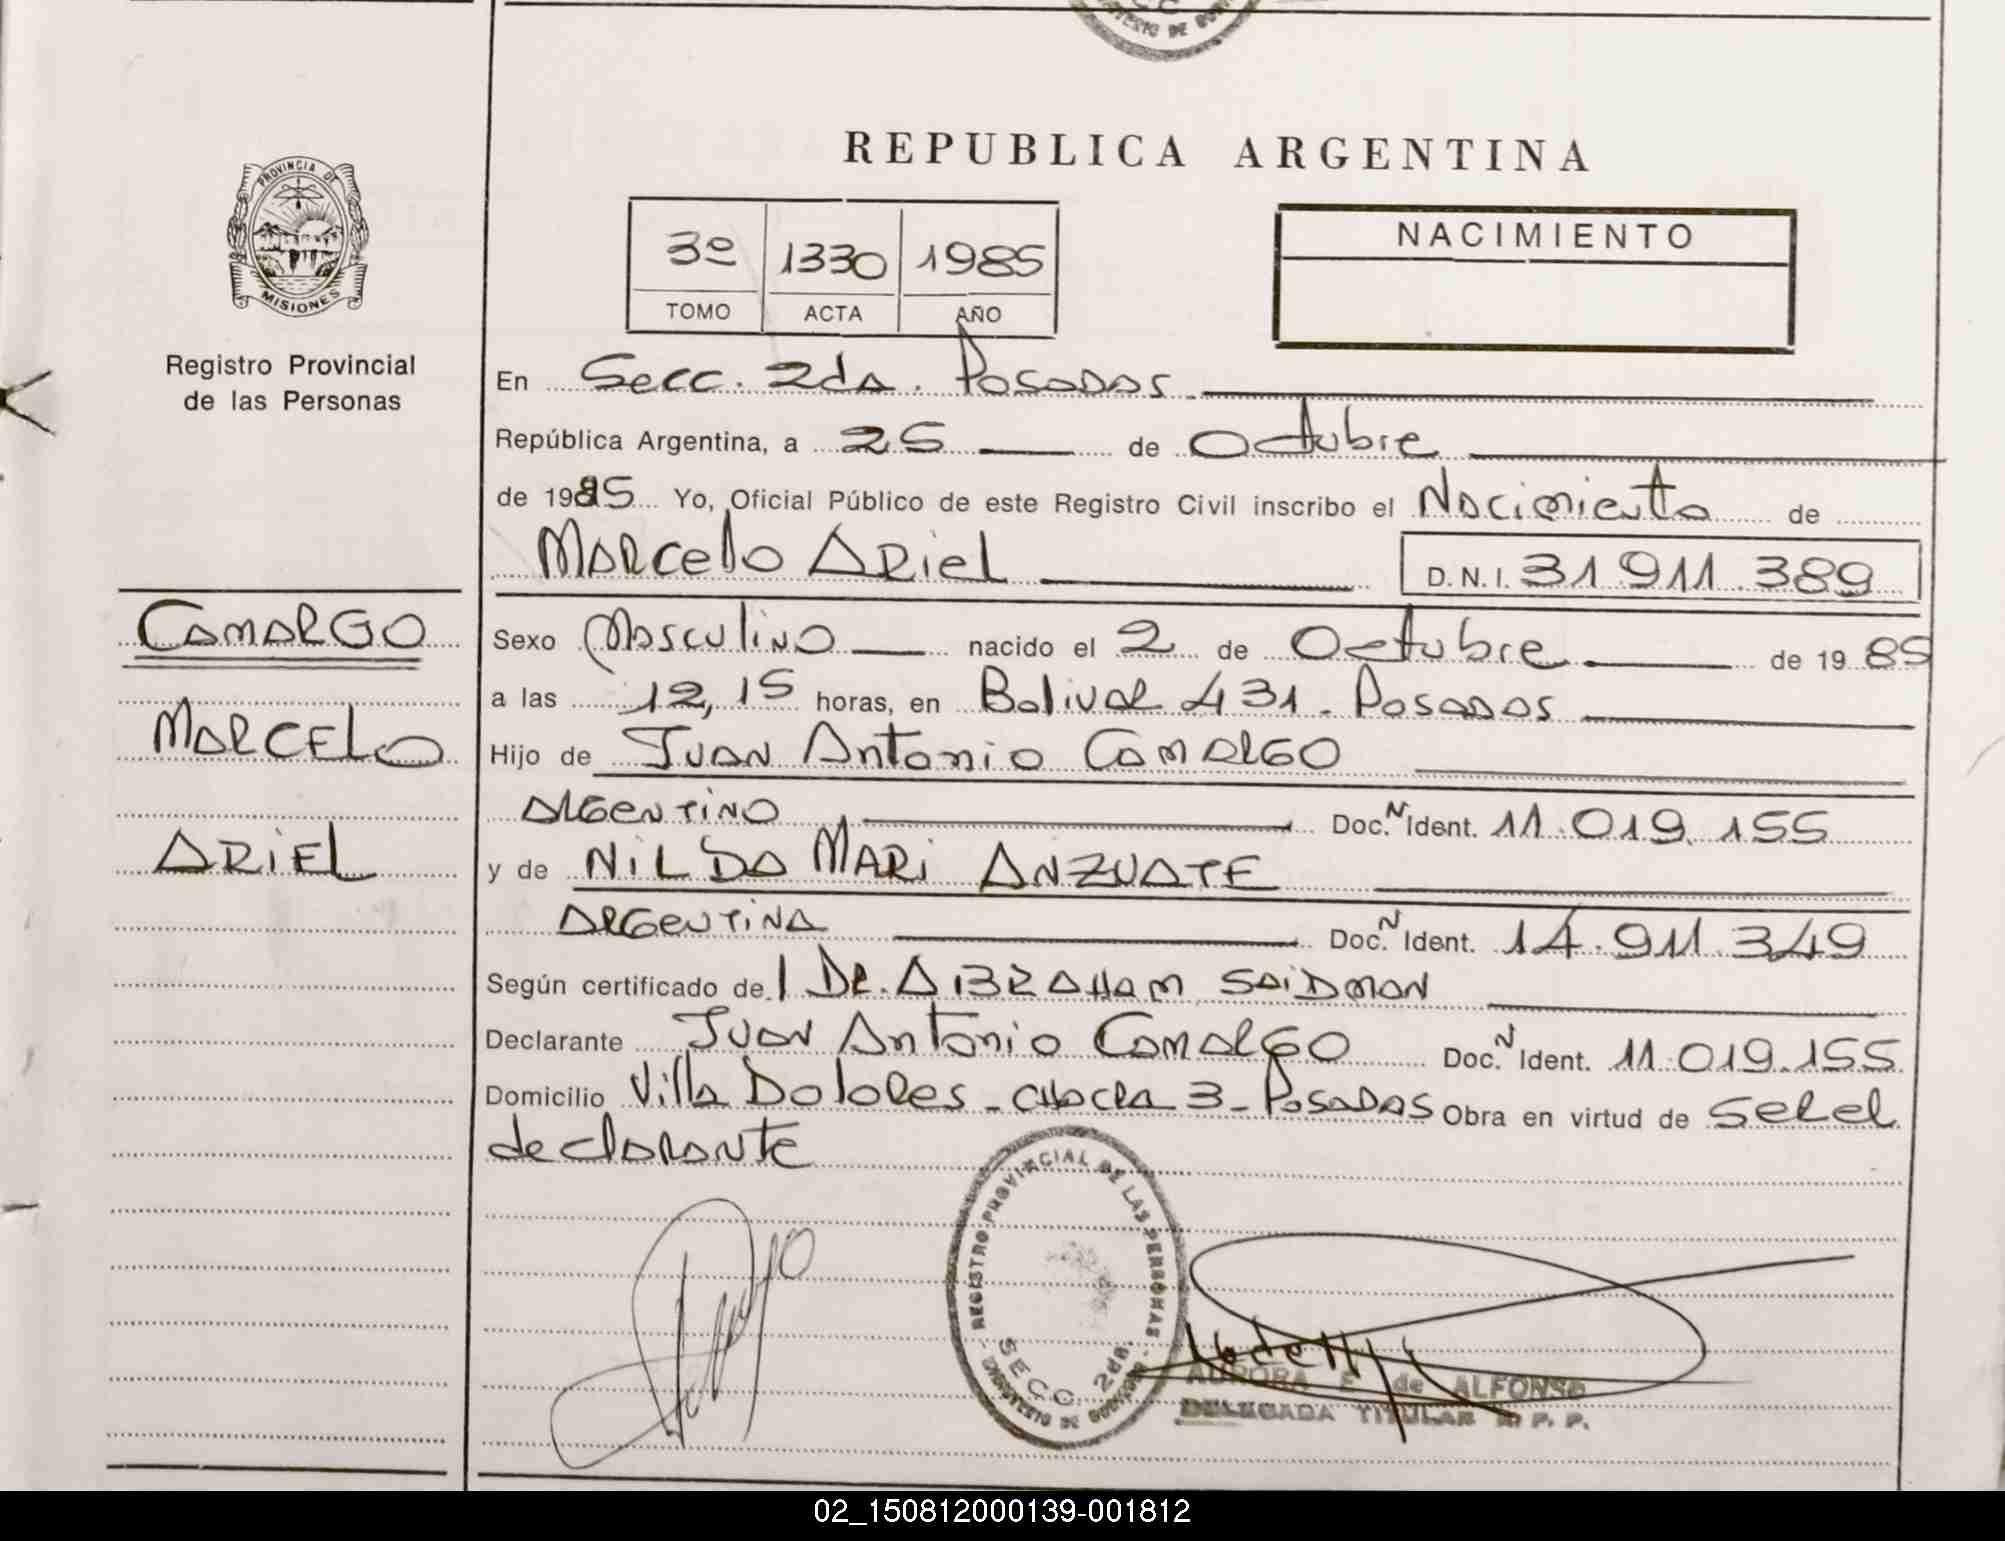 MINISTERIO DE GOBIERNO
REPUBLICA ARGENTINA
PROVINCIA DE
MISIONES
Registro Provincial
de las Personas
3º 1330 1985
TOMO ACTA AÑO
NACIMIENTO
En Secc. 2da. Posadas
República Argentina, a 25 de Octubre
de 1985 Yo, Oficial Público de este Registro Civil inscribo el Nacimiento de
Marcelo Ariel D.N.I. 31.911.389
CAMARGO
MARCELO
ARIEL
Sexo Masculino nacido el 2 de Octubre de 1985
a las 12,15 horas, en Bolivar 431. Posadas
Hijo de Juan Antonio Camargo
Argentino Doc. N Ident. 11.019.155
y de NILDA MARI ANZUATE
Argentina Doc. N Ident. 14.911.349
Según certificado de Dr. ABRAHAM SAIDMAN
Declarante Juan Antonio Camargo Doc. N Ident. 11.019.155
Domicilio Villa Dolores - chacra 3 - Posadas Obra en virtud de ser el
declarante
REGISTRO PROVINCIAL DE LAS PERSONAS
SECC. 2da.
MINISTERIO DE GOBIERNO
AURORA E. de ALFONSO
DELEGADA TITULAR R. P. P.
02_150812000139-001812